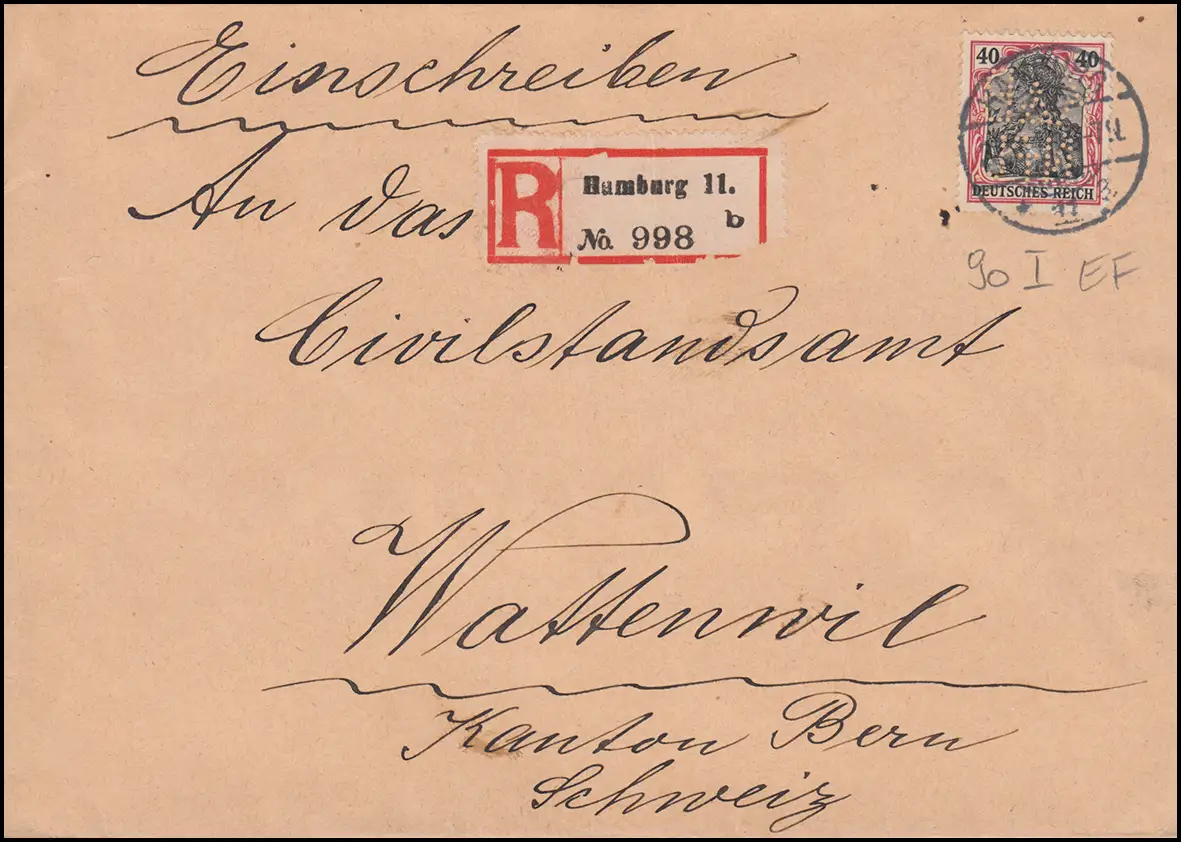 Einschreiben
40 40
DEUTSCHES REICH
An das
R Hamburg 11.
b
No. 998
90 I EF
Civilstandsamt
Wattenwil
Kanton Bern
Schweiz